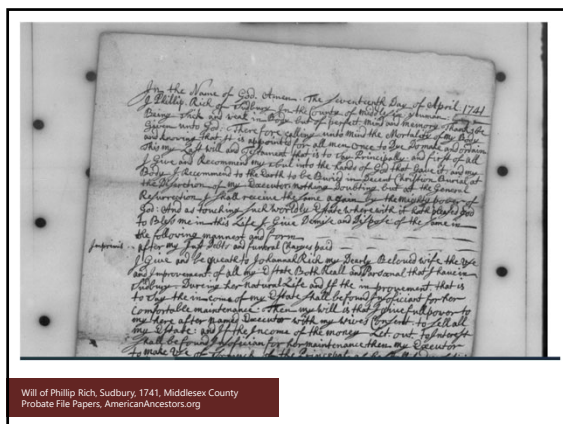 In the Name of God Amen. The Seventeenth Day of April 1741
I Phillip Rich of Sudbury In the County of Middlesex yeuman
Being Sick and weak in Body but of perfect mind and memory Thanks be
Given unto God: Therefore calling unto mind the Mortality of my Body
and knowing that it is appointed for all men once to Dye Do make and ordain
This my Last will and Testament that is to Say Principally and first of all
I Give and Recommend my Soul into the hands of God that Gave it and my
Body I Recommend to the Earth to be Buried in Decent Christian Burial at
the Discretion of my Executor nothing Doubting but at the General
Resurrection I Shall receive the Same again by the mighty power of
God: And as touching Such worldly Estate wherewith it hath pleased God
to Bless me in this Life I Give Demise and Dispose of the Same in
the following manner and form
Imprimis after my Just Debts and Funeral Charges paid
I Give and be queath to Johannah Rich my Dearly Beloved wife the Use
and Improvement of all my Estate Both Reall and Parsonal that I have in
Sudbury During her natural Life and If the improvement that is
to Say the income of my Estate Shall be found Insoficiant for her
Comfortable maintenance Then my will is that I Give full power to
my here after named Executor with my wives Consent to Sell all
my Estate and If the Income of the money Let out to Interest
Shall be found Insofician for her maintenance then my Executor
to make Use of of the Principal
Will of Phillip Rich, Sudbury, 1741, Middlesex County
Probate File Papers, AmericanAncestors.org